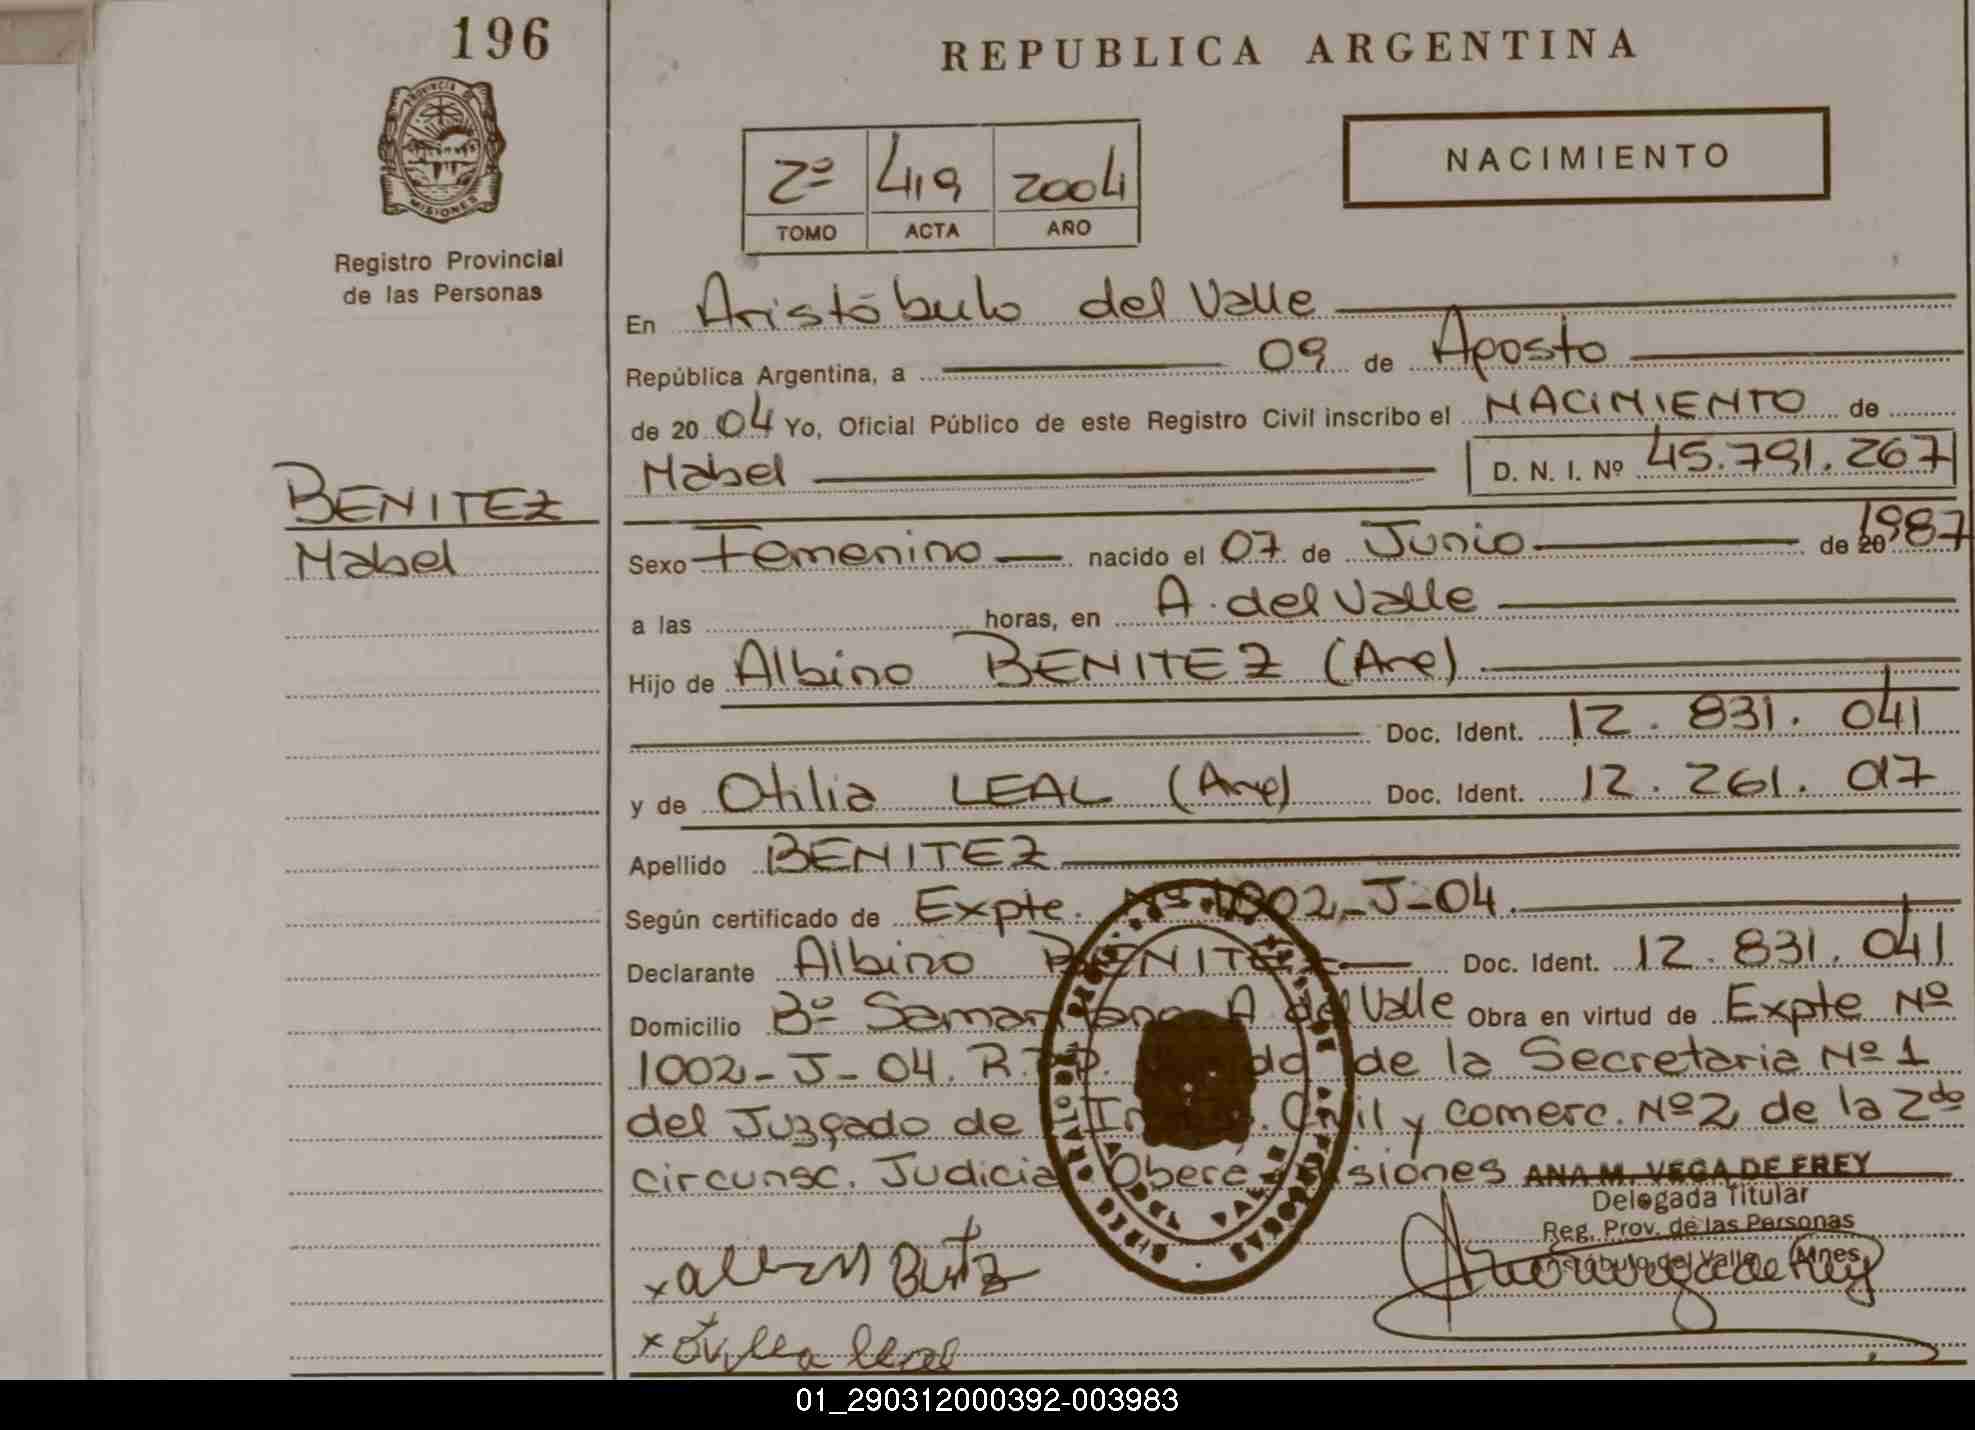 196
REPUBLICA ARGENTINA
PROVINCIA DE
MISIONES
Registro Provincial
de las Personas
2º 419 2004
TOMO ACTA AÑO
NACIMIENTO
En Aristóbulo del Valle
República Argentina, a 09 de Agosto
de 2004 Yo, Oficial Público de este Registro Civil inscribo el NACIMIENTO de
Mabel D. N. I. Nº 45.791.267
BENITEZ
Mabel
Sexo Femenino nacido el 07 de Junio de 20 1987
a las horas, en A. del Valle
Hijo de Albino BENITEZ (Arg)
Doc. Ident. 12.831.041
y de Otilia LEAL (Arg) Doc. Ident. 12.261.017
Apellido BENITEZ
Según certificado de Expte. Nº 1002-J-04.
Declarante Albino BENITEZ Doc. Ident. 12.831.041
Domicilio Bº Samaritano A del Valle Obra en virtud de Expte Nº
1002-J-04. de la Secretaria Nº 1
del Juzgado de Civil y comerc. Nº 2 de la 2do
circunsc. Judicial Oberá Misiones
ANA M. VEGA DE FREY
Delegada Titular
Reg. Prov. de las Personas
Aristóbulo del Valle Mnes
x
x
01_290312000392-003983